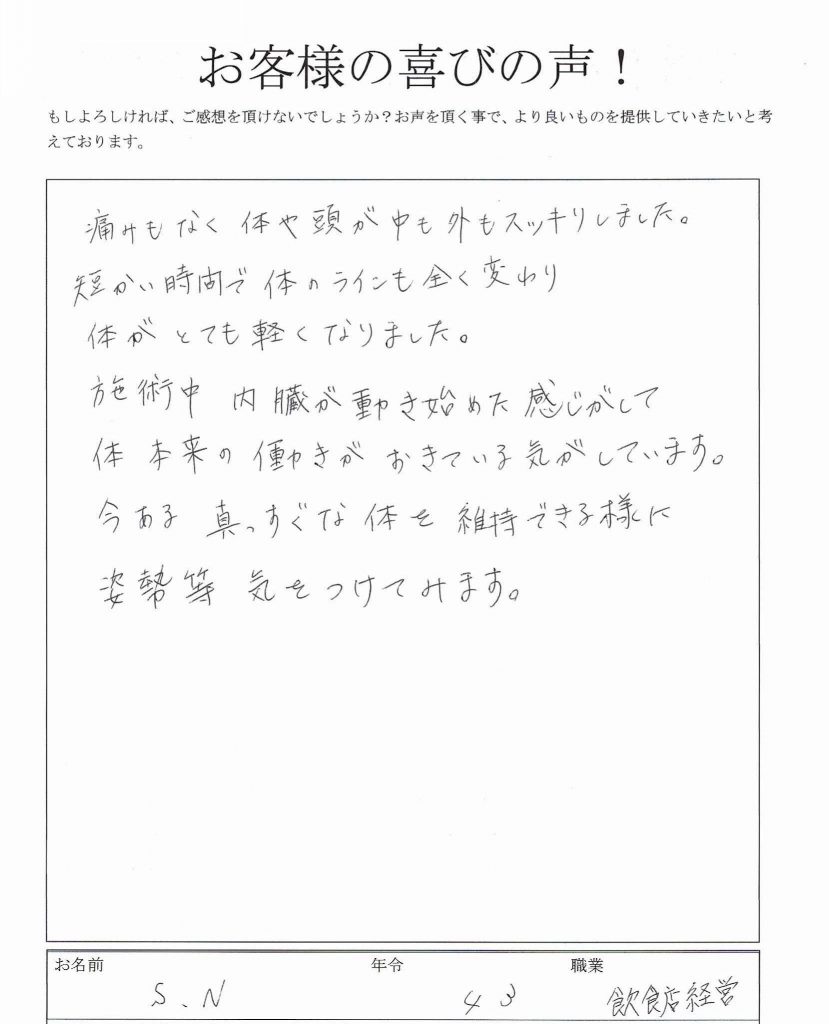 お客様の喜びの声！
もしよろしければ、ご感想を頂けないでしょうか？お声を頂く事で、より良いものを提供していきたいと考
えております。
痛みもなく 体や頭が中も外もスッキリしました。
短かい時間で 体のラインも全く変わり
体が とても軽くなりました。
施術中 内臓が動き始めた感じがして
体 本来の働きが おきている気がしています。
今ある 真っすぐな 体を 維持できる様に
姿勢等 気をつけてみます。
お名前 年令 職業
S.N 43 飲食店経営